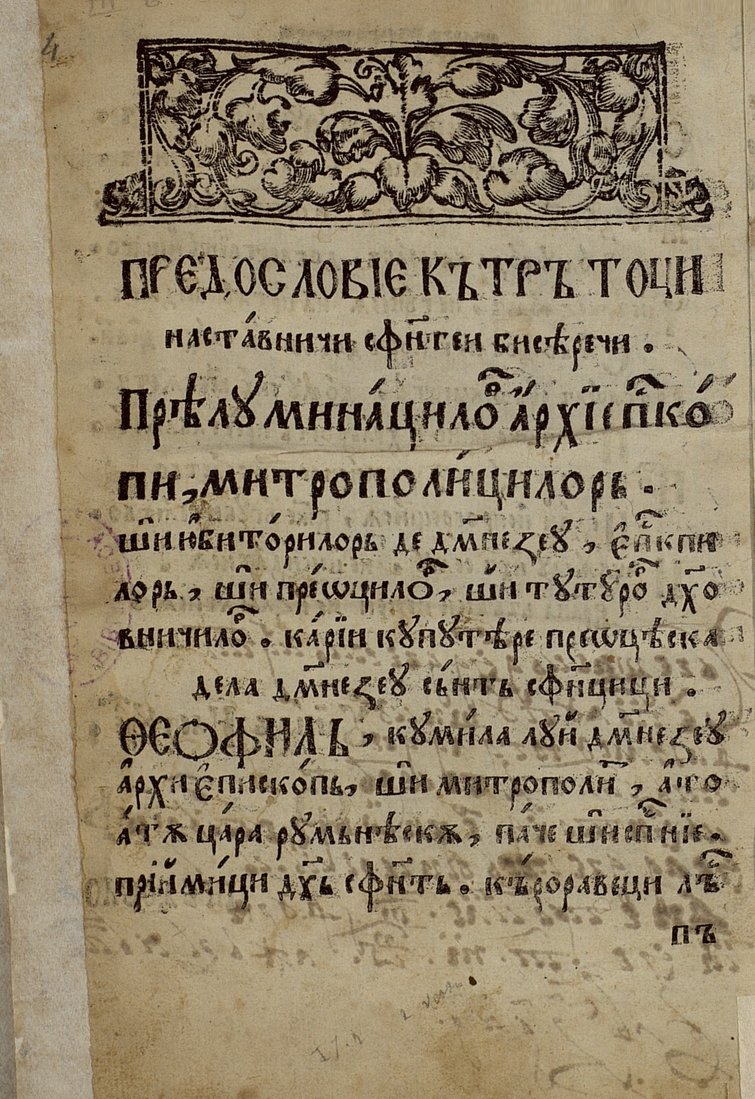 4
ПРЕДОСЛОВІЕ КЪТРЪ ТОЦИ
наста́вничи сфⷩ҇теи бисѣречи .
Прѣлꙋмина́цилѡⷬ҇ а҆рхїепⷭ҇ко́
пи, митрополи́цилорь .
ши ю҆бито́рилорь де дмⷩ҇еꙁеꙋ , є҆пⷭ҇кпи
лорь , ши пре́ѡцилоⷬ҇ , ши тꙋтꙋ́роⷬ҇ дх҃о
вничилоⷬ҇ . ка́рїи кꙋпꙋтѣ́ре преѡцѣ́ска
дела дмⷩ҇еꙁеꙋ сы́нть сфⷩ҇цици .
ѲЕОФИЛЬ , кꙋми́ла лꙋй дмⷩ҇еꙁеꙋ
а҆рхиє҆писко́пь, ши митрополиⷮ , а҆то
а́тѫ ца́ра рꙋмънѣ́скѫ , па́че ши спⷭ҇нїе .
прїи́ми́ци дх҃ь сфⷩ҇ть . кѫ́роравеци лъⷭ҇
пъ